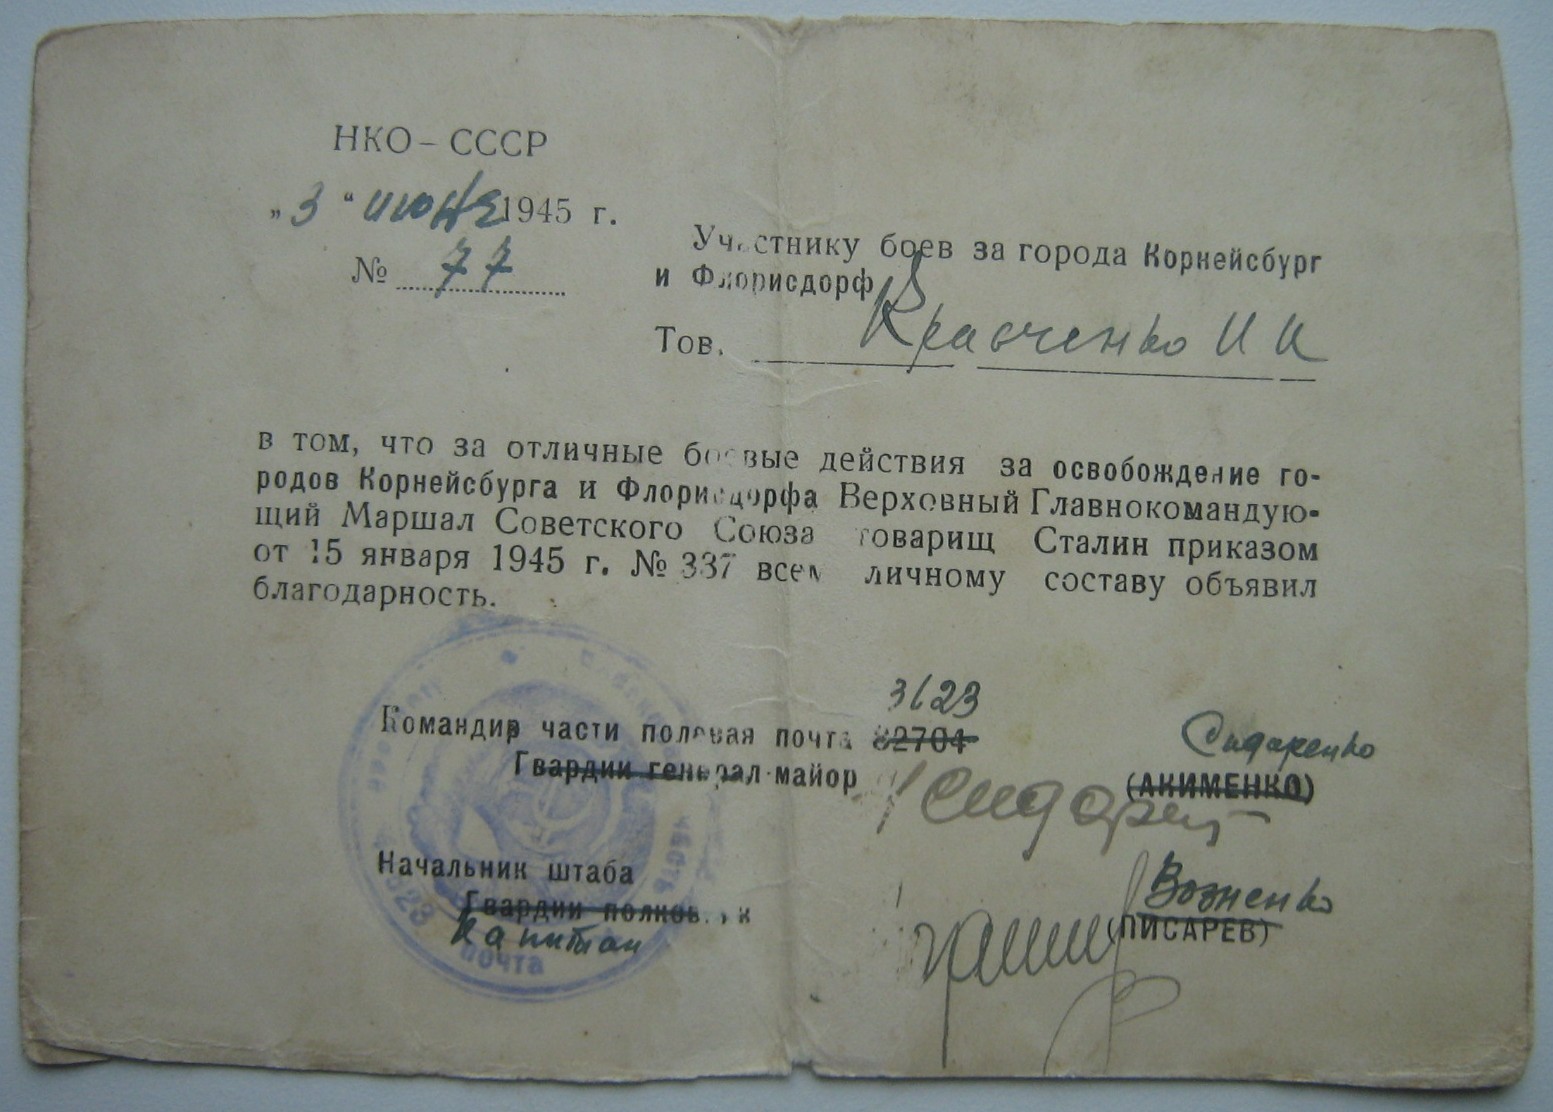 НКО – СССР
„3“ июня 1945 г.
№ 77
Участнику боев за города Корнейсбург
и Флорисдорф
Тов. Кравченко И И
в том, что за отличные боевые действия за освобождение го-
родов Корнейсбурга и Флорисдорфа Верховный Главнокомандую-
щий Маршал Советского Союза товарищ Сталин приказом
от 15 января 1945 г. № 337 всем личному составу объявил
благодарность.
3623
Командир части полевая почта 32704 Сидаренко
Гвардии генерал-майор (АКИМЕНКО)
Начальник штаба Возненко
Гвардии полковник (ПИСАРЕВ)
Капитан
почта